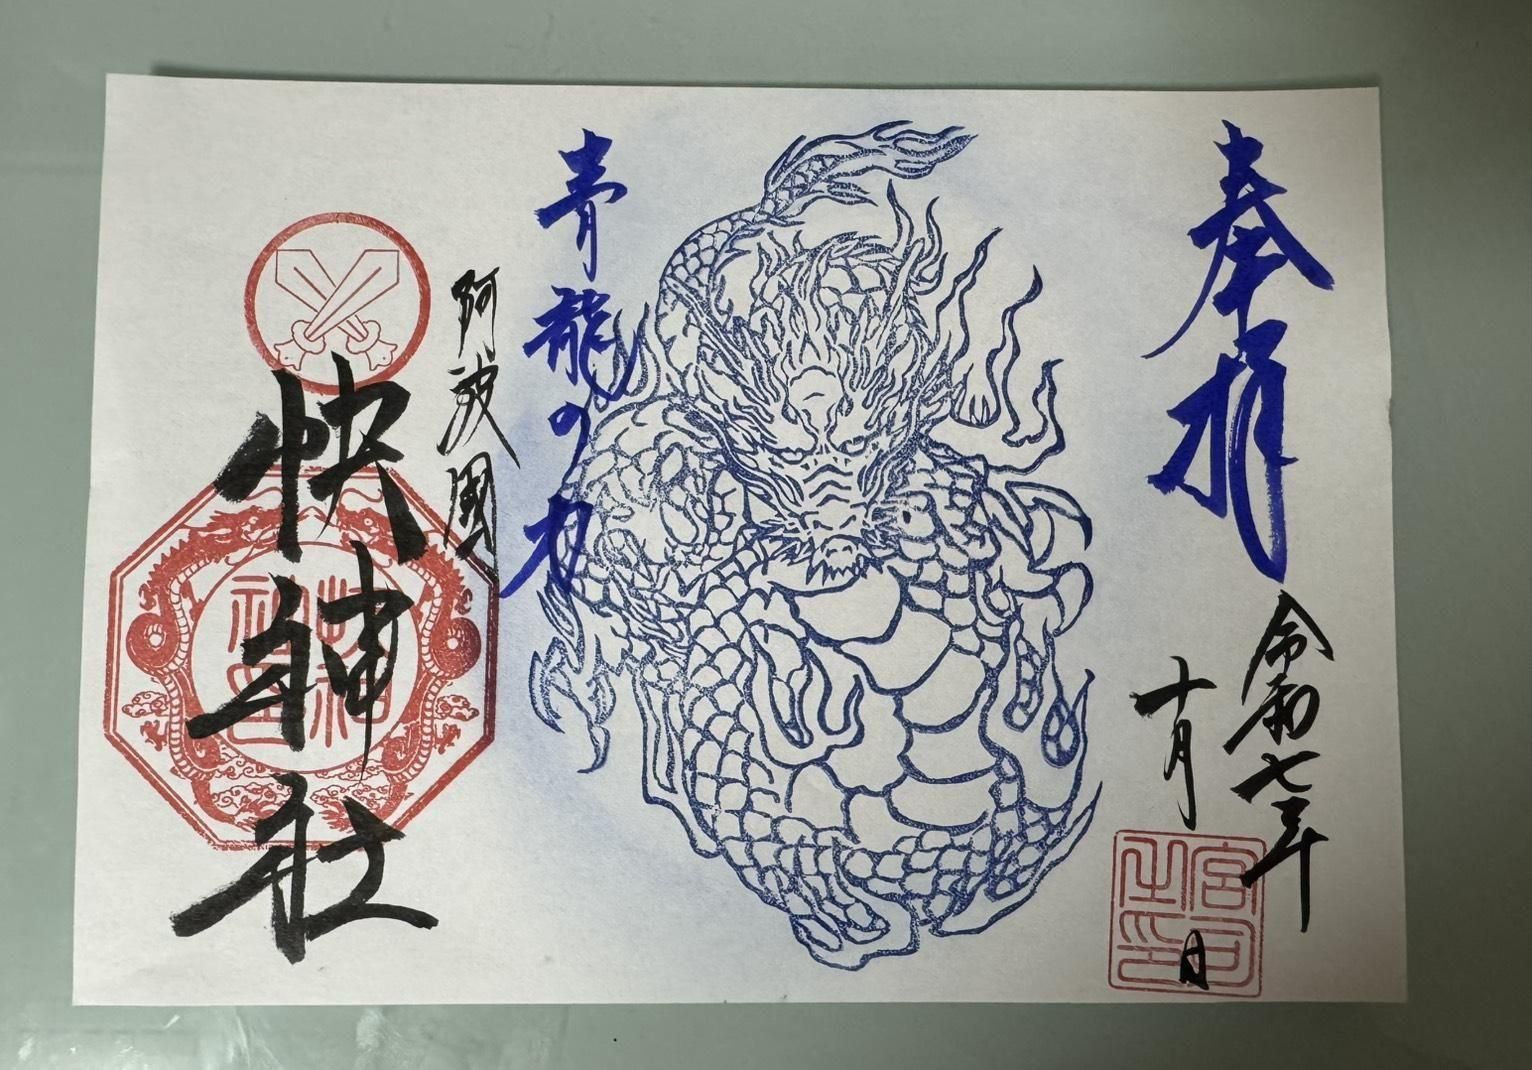 奉拝
令和七年
十月 日
宮司之印
青龍の力
阿波國
快神社